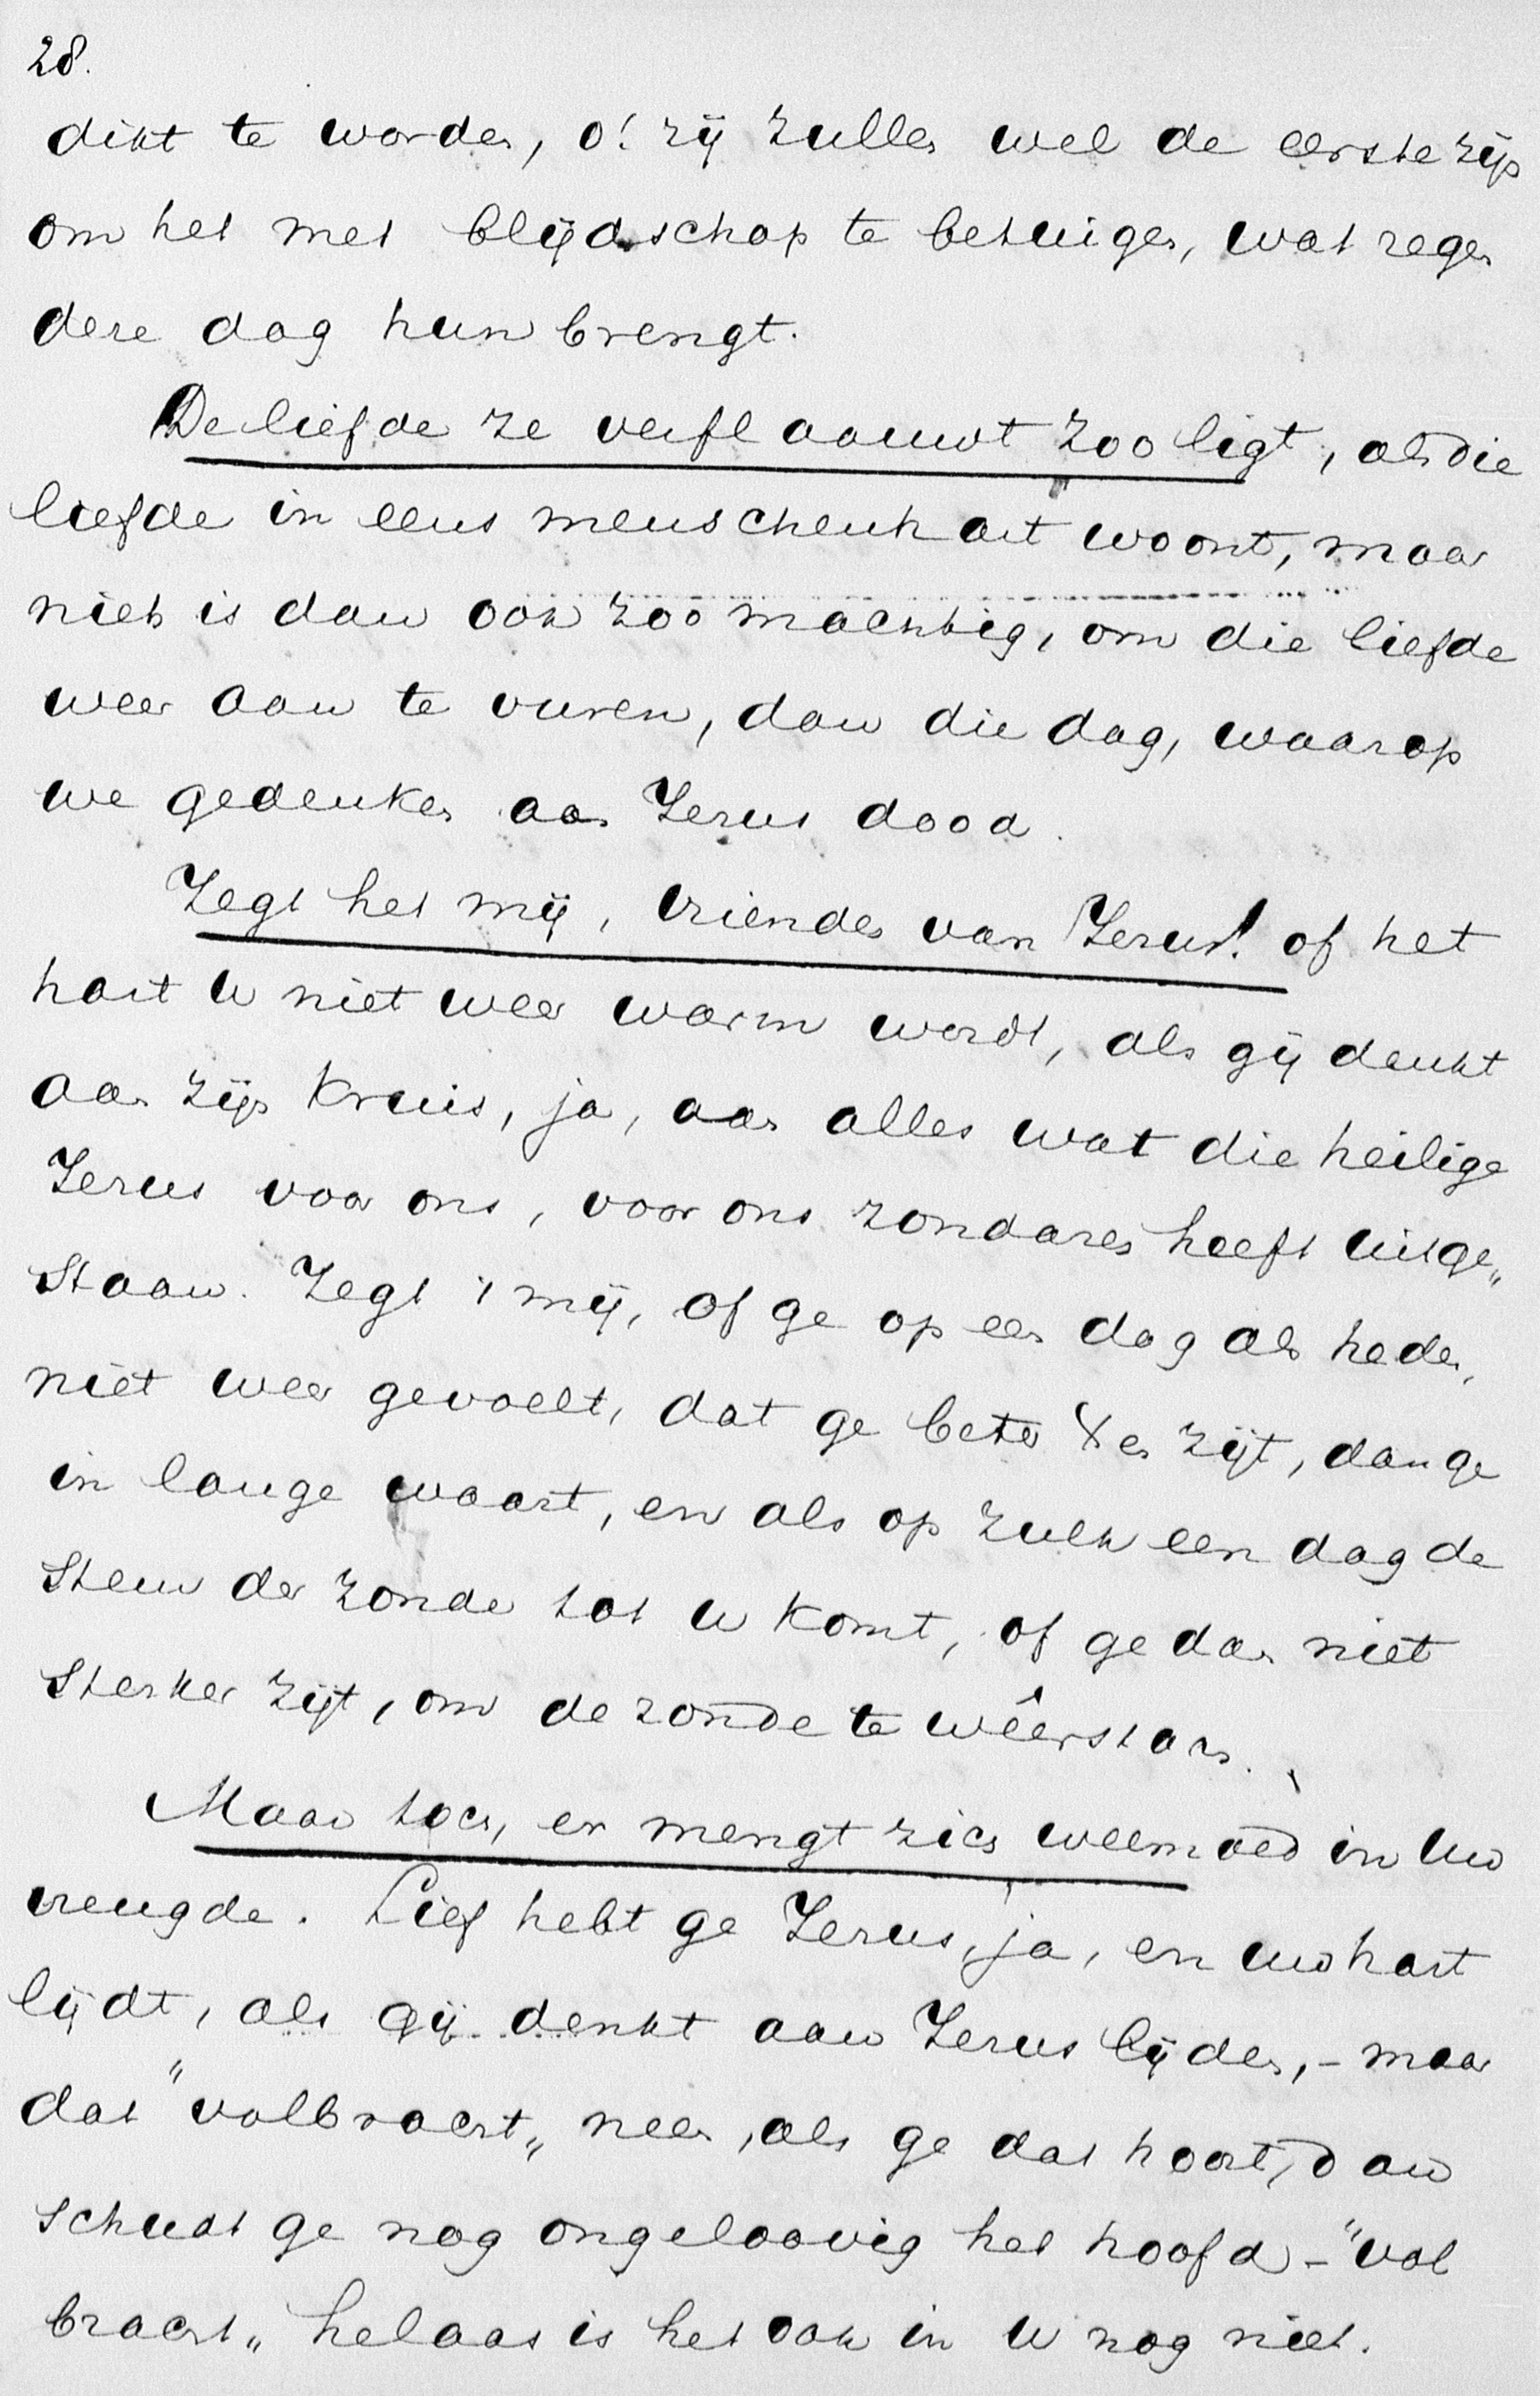 28.
dikt te worden, o! zij zullen wel de eerste zijn
om het met blijdschap te betuigen, wat zegen
deze dag hun brengt.
De liefde ze verflaauwt zoo ligt, als die
liefde in eens menschenhart woont, maar
niets is dan ook zoo machtig, om die liefde
weer aan te vuren, dan die dag, waarop
we gedenken aan Jezus dood.
Zegt het mij, vrienden van Jezus! of het
hart U niet weer warm wordt, als gij denkt
aan zijn kruis, ja, aan alles wat die heilige
Jezus voor ons, voor ons zondaren heeft uitge„
staan. Zegt 't mij, of ge op een dag als heden,
niet weer gevoelt, dat ge beter er zijt, dan ge
in lange waart, en als op zulk een dag de
stem der zonde tot U komt, of ge dan niet
sterker zijt, om de zonde te wêerstaan.
Maar toch, er mengt zich weemoed in Uw
vreugde. Lief hebt ge Jezus, ja, en uw hart
lijdt, als gij denkt aan Jezus lijden, – maar
dat "volbracht„ neen, als ge dat hoort, dan
schudt ge nog ongeloovig het hoofd – "vol
bracht„ helaas is het ook in U nog niet.